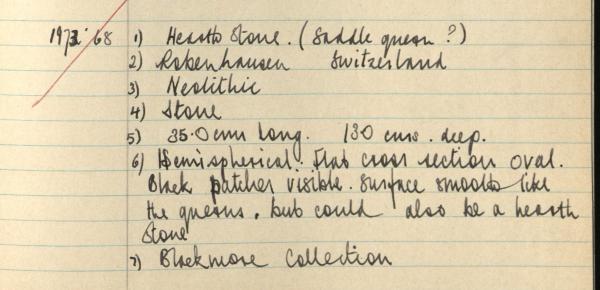 1973.68 1) Hearth Stone. (Saddle quern?)
2) Robenhausen Switzerland
3) Neolithic
4) Stone
5) 35.0 cms long. 13.0 cms. deep.
6) Hemispherical. Flat cross section oval.
Black patches visible. Surface smooth like
the querns, but could also be a hearth
Stone
7) Blackmore Collection